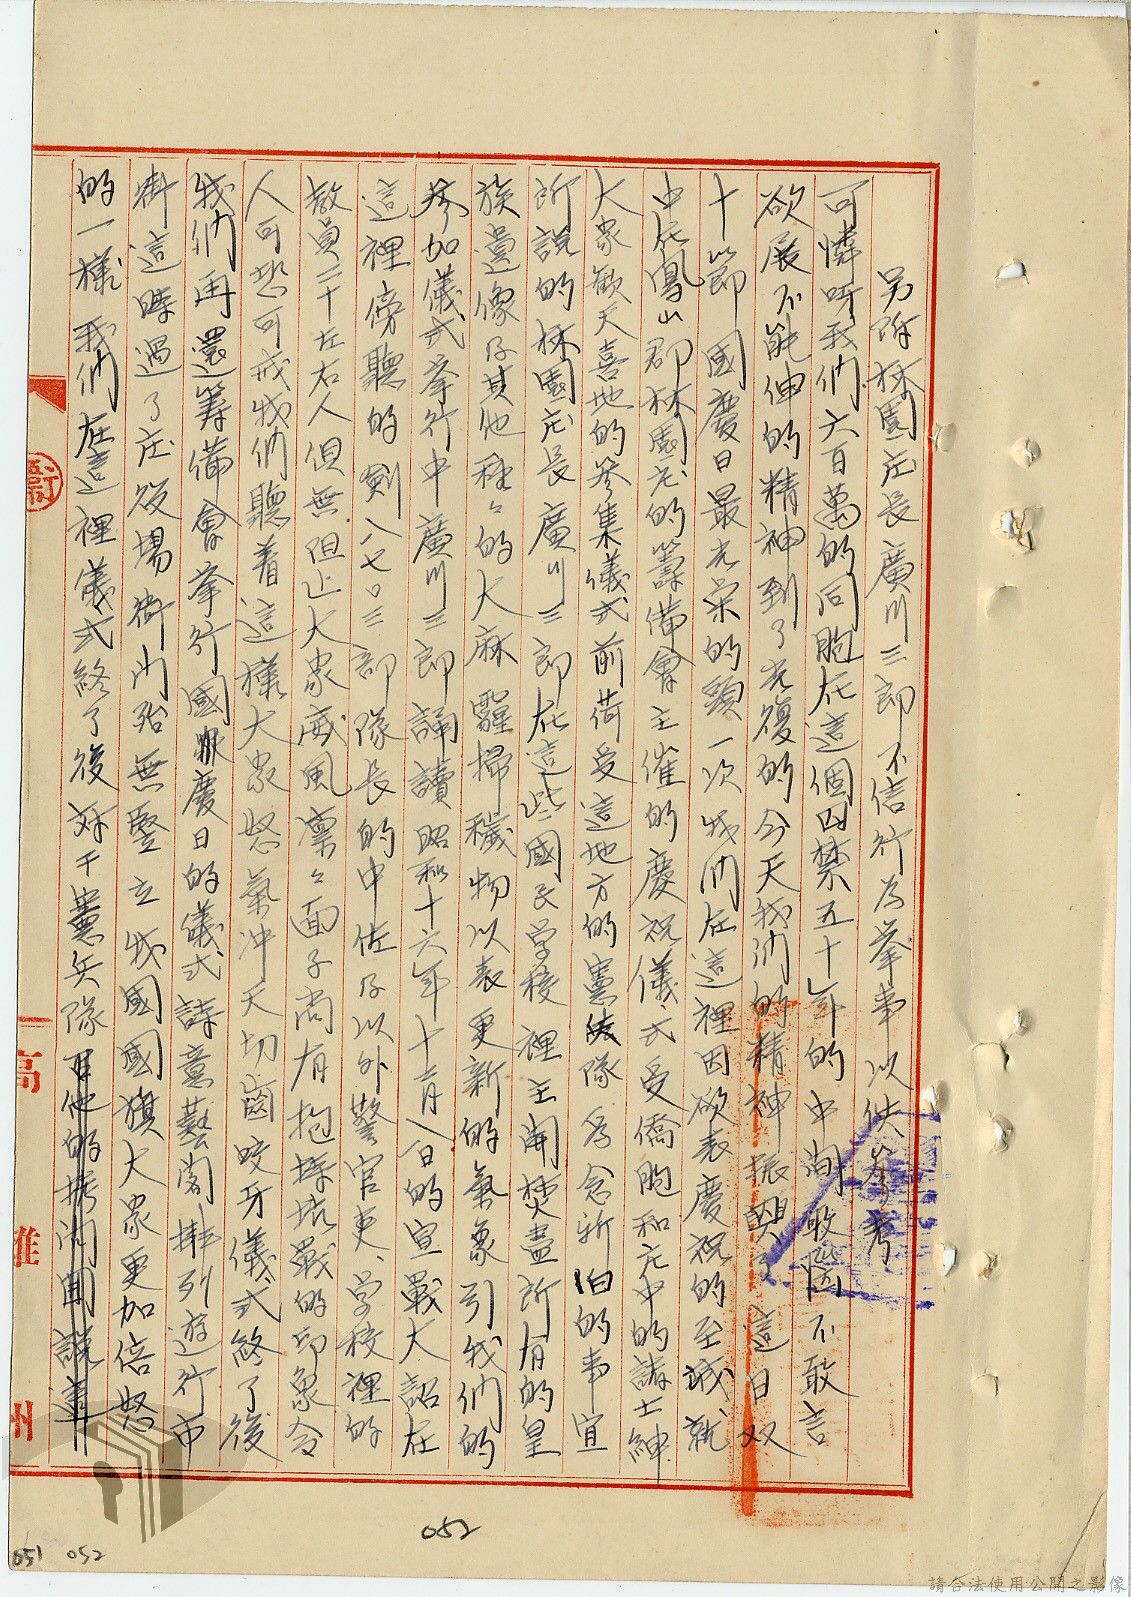 另附林園庄長廣川三郎不信行為挙事以供參考
可憐呀我們六百萬的同胞在這個囚禁五十年的中間 不敢言
欲展不能伸的精神到了光復的今天我們的精神振興了這日双
十節國慶日最光栄的頭一次我們在這裡因欲表慶祝的至誠就
中在鳳山郡林園庄的籌備會主催的慶祝儀式受僑胞和庄中的諸士紳
大衆歡天喜地的參集儀式前荷受這地方的憲兵隊為念新旧的事宜
所說的林園庄長廣川三郎在這些國民学校裡主開焚盡所有的皇
族遺像及其他種々的大麻 掃穢物以表更新的氣象引我們的
參加儀式挙行中廣川三郎誦讀昭和十六年十二月八日的宣戰大詔在
這裡傍聽的剣八七〇三部隊長的中佐及以外警官吏学校裡的
教員二十左右人俱無阻止大衆威風凛々面子尚有抱 戰的印象令
人可恐可戒我們聽着這樣大衆怒氣冲天切齒咬牙儀式終了後
我們再還籌備會挙行國慶日的儀式詩意藝閣排列遊行市
街這時過了庄役場衙門殆無竪立我國國旗大衆更加倍怒
的一樣我們在這裡儀式終了後 于憲兵隊
高
雄
州
052
051 052
請合法使用公開之影像